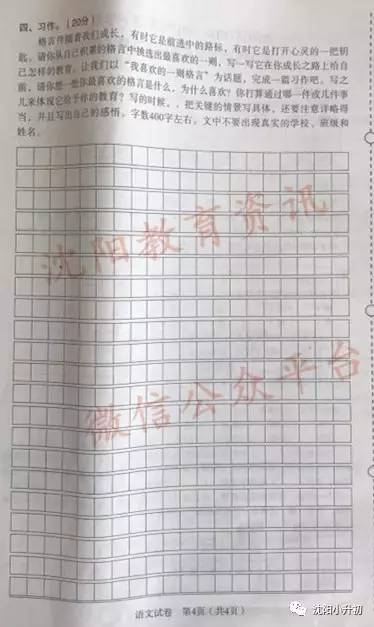 四、习作。(20分)
格言伴随着我们成长，有时它是前进中的路标，有时它是打开心灵的一把钥
匙。请你从自己积累的格言中挑选出最喜欢的一则，写一写它在你成长之路上给自
己怎样的教育。让我们以“我喜欢的一则格言”为话题，完成一篇习作吧。写之
前，请你想一想你最喜欢的格言是什么，为什么喜欢？你打算通过哪一件或几件事
儿来体现它给予你的教育？写的时候，，把关键的情景写具体，还要注意详略得
当，并且写出自己的感悟。字数400字左右。文中不要出现真实的学校、班级和
姓名。
沈阳教育资讯
微信公众平台
语文试卷 第4页（共4页）
沈阳小升初